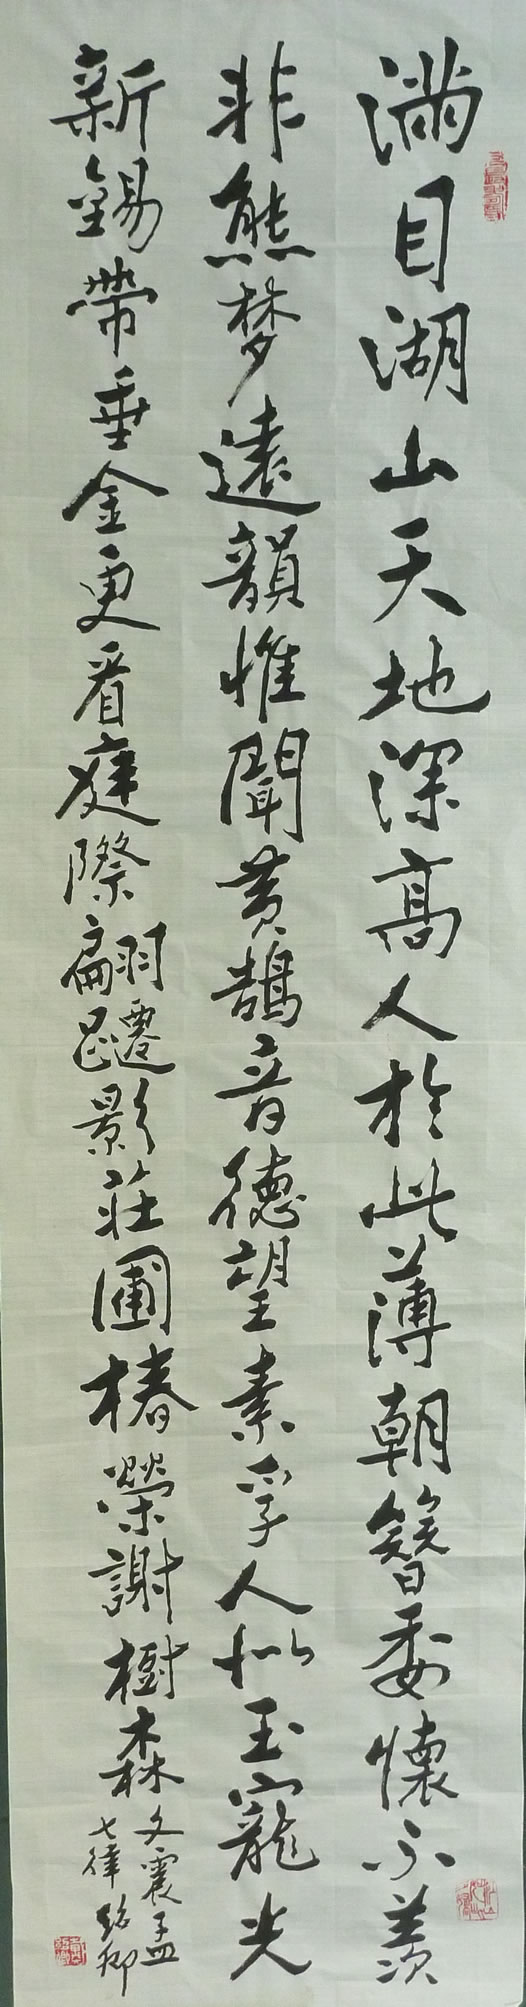 滿目湖山天地深高人於此薄朝簪委懷不羨
非熊梦遠韻惟聞黄鵠音德望素孚人似玉寵光
新錫帶垂金更看庭際翩躚影莊圃椿榮謝樹森
文震孟
七律 銘卿